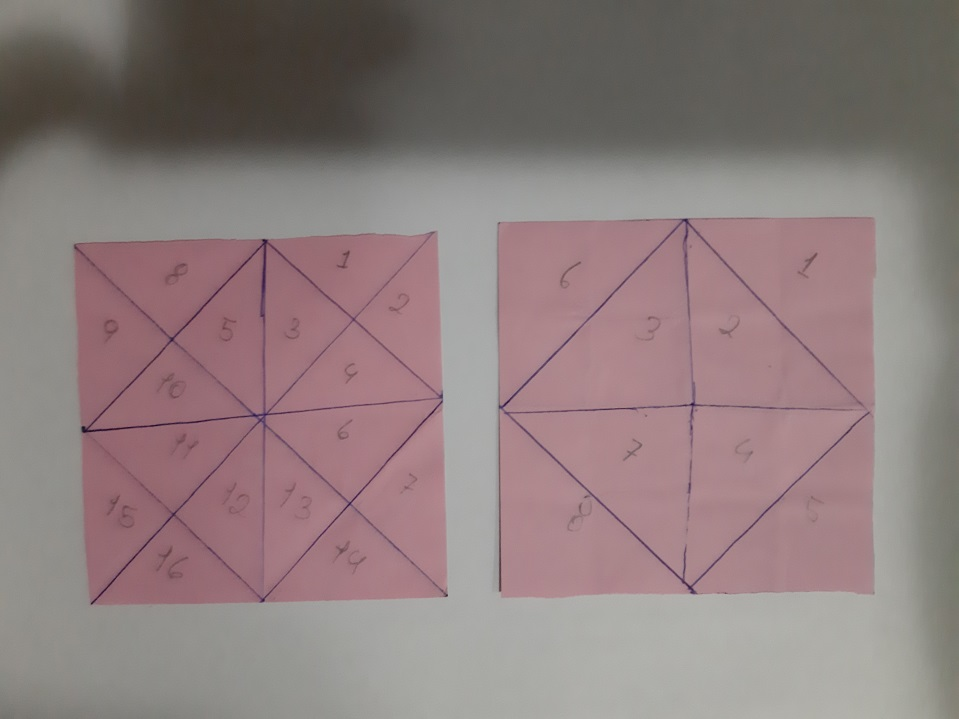 8
1
9
5
3
2
10
4
11
6
15
12
13
7
16
14
6
1
3
2
7
4
8
5